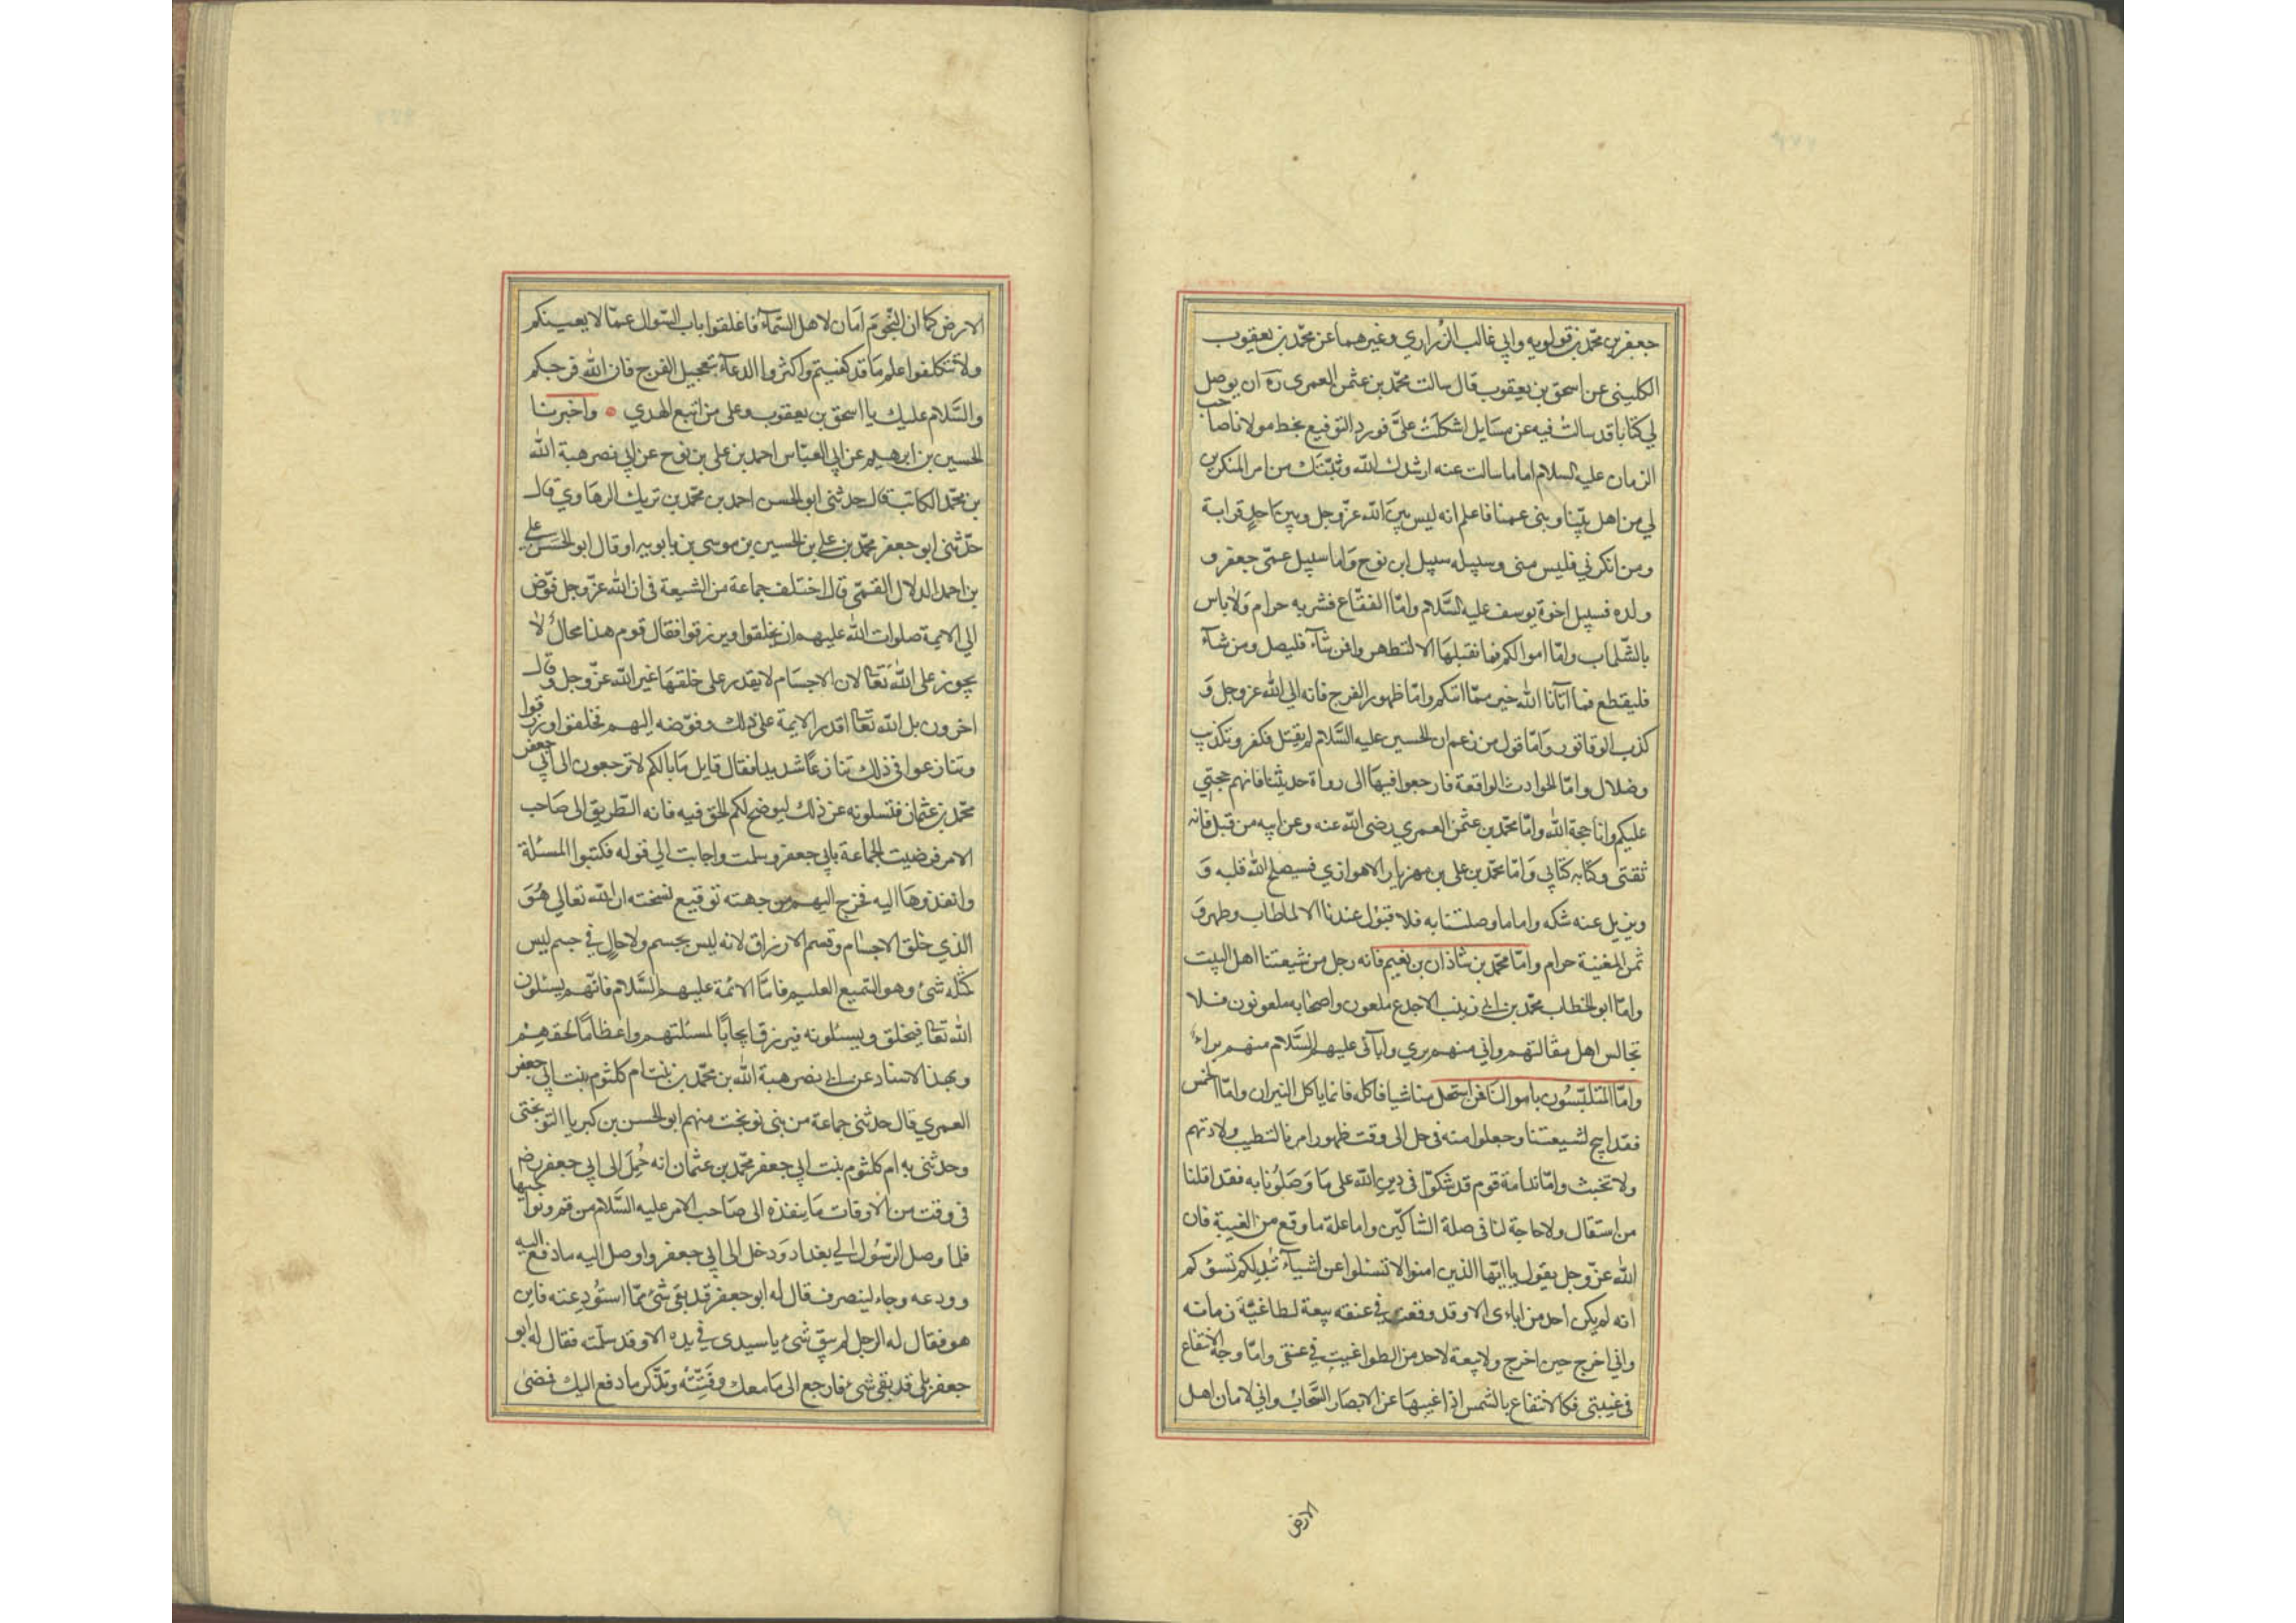 جعفر بن محمد بن قولويه وابي غالب الزراري وغيرهما عن محمد بن يعقوب
الكليني عن اسحق بن يعقوب قال سالت محمد بن عثمن العمري ره ان يوصل
لي كتابا قد سالت فيه عن مسايل اشكلت علىَّ فورد التوقيع بخط مولانا صاحب
الزمان عليه السلام اما ما سالت عنه ارشدك الله وثبّتك من امر المنكرين
لي من اهل بيتنا وبنى عمنا فاعلم انه ليس بين الله عزّ وجل وبين احدٍ قرابة
ومن انكرني فليس منى وسبيله سبيل ابن نوح وَاما سبيل عمّى جعفر و
ولده فسبيل اخوة يوسف عليه السَّلام وامّا الفقّاع فشربه حرام وَلا باس
بالشّلماب وامّا اموالكم فما نقبلهَا الا لتطهروا فمن شآء فليصل ومن شآء
فليقطع فما اتانا الله خير ممّا اتيكم وامّا ظهور الفرج فانه الي الله عز وجل وَ
كذب الوقاتون وَامّا قول من زعم ان الحسين عليه السَّلام لم يقتل فكفر وتكذيب
وضلال وامّا الحوادث الواقعة فارجعوا فيهَا الى رواة حديثنا فانهم حجتي
عليكم وانا حجة الله وامّا محمّد بن عثمن العمري رضى الله عنه وعن ابيه من قبل فانه
ثقتى وكتابه كتابي وَامّا محمّد بن على بن مهزيار الاهوازي فسيصلح الله قلبه وَ
ويزيل عنه شكه واما ما وصلتنا به فلا قبول عندنا الا لما طاب وطهر وَ
ثمن المغنية حرام وامّا محمّد بن شاذان بن نعيم فانه رجل من شيعتنا اهل البيت
وامّا ابو الخطاب محمّد بن ابي زينب الاجدع ملعون واصحابه ملعونون فلا
تجالس اهل مقالتهم واني منهم بري وابآئى عليهم السَّلام منهم براء
وامّا المتلبّسُون باموالنَا فمن استحل منا شيا فاكله فانما ياكل النيران وامّا الخمس
فقد ابيح لشيعتنا وجعلوا منه فى حل الى وقت ظهور امرنا لتطيب ولادتهم
ولا تخبث وامّا ندامة قوم قد شكوّا فى دين الله على مَا وَصَلُونا به فقد اقلنا
من استقال ولا حاجة لنا فى صلة الشاكّين واما علة ما وقع من الغيبة فان
الله عزّ وجل يقول يا ايّها الذين امنوا لا تسئلوا عن اشيآء تُبد لكم تسؤكم
انه لم يكن احد من ابايى الا وقد وقعت فى عنقه بيعة لطاغيّة زمانه
وانى اخرج حين اخرج ولا بيعة لاحد من الطواغيت فى عنقى وامّا وجه الانتفاع
فى غيبتى فكالانتفاع بالشمس اذا غيبهَا عن الابصار السَّحاب وانى لامان اهل
الارض
الارض كما ان النّجوم اَمان لاهل السّمآء فاغلقوا باب السّوال عمّا لا يعينكم
ولا تتكلفوا علم مَا قد كفيتم واكثروا الدعآء بتعجيل الفرج فان الله فرجكم
والسَّلام عليك يا اسحق بن يعقوب وعلى من اتبع الهدي واخبرنا
الحسين بن ابرهيم عن ابي العبّاس احمد بن على بن نوح عن ابي نصر هبة الله
بن محمّد الكاتب قال حدثنى ابو الحسن احمد بن محمّد بن تريك الرهَاوي قال
حدّثنى ابو جعفر محمّد بن على بن الحسين بن موسى بن بابويه او قال ابو الحسن على
بن احمد الدلال القمّى قال اختلف جماعة من الشيعة فى ان الله عزّ وجل فوّض
الي الايمة صلوات الله عليهم ان يخلقوا ويرزقوا فقال قوم هذا محال لا
يجوز على الله تَعَا لان الاجسَام لا يقدر على خلقهَا غير الله عزّ وجل وقال
اخرون بل الله تعا اقدر الايمة على ذلك وفوّضه اليهم فخلقوا ورزقوا
وتنازعوا فى ذلك تنازعًا شديدا فقال قايل مَا بالكم لا ترجعون الى ابي جعفر
محمّد بن عثمان فتسلونه عن ذلك ليوضح لكم الحق فيه فانه الطّريق الى صَاحب
الامر فرضيت الجماعة بابي جعفر وسلمت واجابت الي قوله فكتبوا المسئلة
وانفذوهَا اليه فخرج اليهم من جهته توقيع نسخته ان الله تعالي هُوَ
الذي خلق الاجسَام وقسم الارزاق لانه ليس بجسم ولا حالٍ في جسم ليس
كمثله شئ وهو السّميع العليم فامّا الائمة عليهم السَّلام فانّهم يسئلون
الله تعا فيخلق ويسئلونه فيرزق ايجابًا لمسئلتهم واعظامًا لحقهم
وبهذا الاسناد عن ابي نصر هبة الله بن محمّد بن بنت ام كلثوم بنت ابي جعفر
العمري قال حدثنى جماعة من بنى نوبخت منهم ابو الحسن بن كبريا النوبختى
وحدثنى به ام كلثوم بنت ابي جعفر محمّد بن عثمان انه حُمِلَ الى ابي جعفر رضـ
فى وقت من الاوقات مَا ينفذه الى صَاحب الامر عليه السَّلام من قم ونواحيها
فلما وصل الرّسُول الي بغداد وَدخل الى ابي جعفر واوصل اليه ما دفع اليه
وودعه وجاء لينصرف قال له ابو جعفر قد بقى شئ ممّا استُودِعته فاين
هو فقال له الرجل لم يبق شئ يا سيدى في يدى الا وقد سلّمته فقال له ابو
جعفر بلى قد بقى شئ فارجع الى مَا معك وفَتّشه وتذّكر ما دفع اليك فمضىٰ